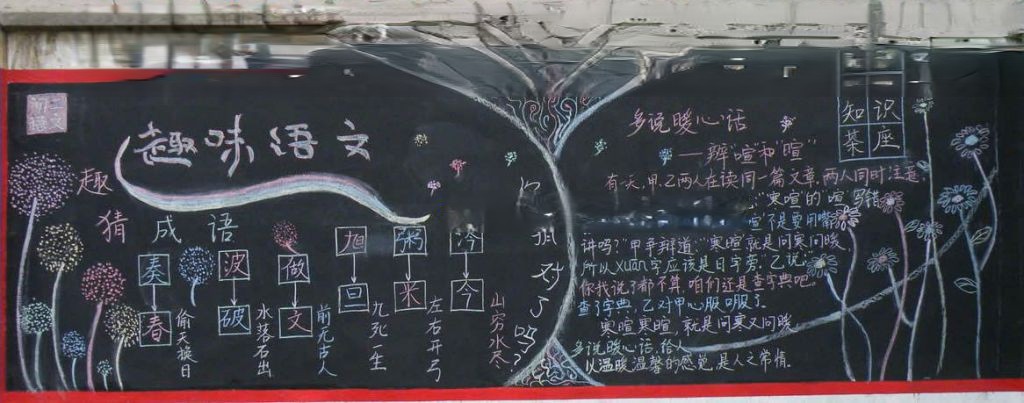 趣味语文
趣猜成语
秦
春
偷天换日
波
破
水落石出
做
文
前无古人
旭
旦
九死一生
粥
米
左右开弓
冷
今
山穷水尽
对了吗
知识
茶座
多说暖心话
——辨“喧”和“暄”
有一天,甲、乙两人在读同一篇文章,两人同时注意
“寒暄的喧写错
不是要用嘴
讲吗?”甲争辩道:“寒喧就是问寒问暖
所以xuān字应该是日字旁。”乙说:
“你我说了都不算,咱们还是查字典吧。”
查了字典,乙对甲心服口服了。
寒暄寒暄,就是问寒又问暖
多说暖心话,给人
以温暖温馨的感觉,是人之常情。